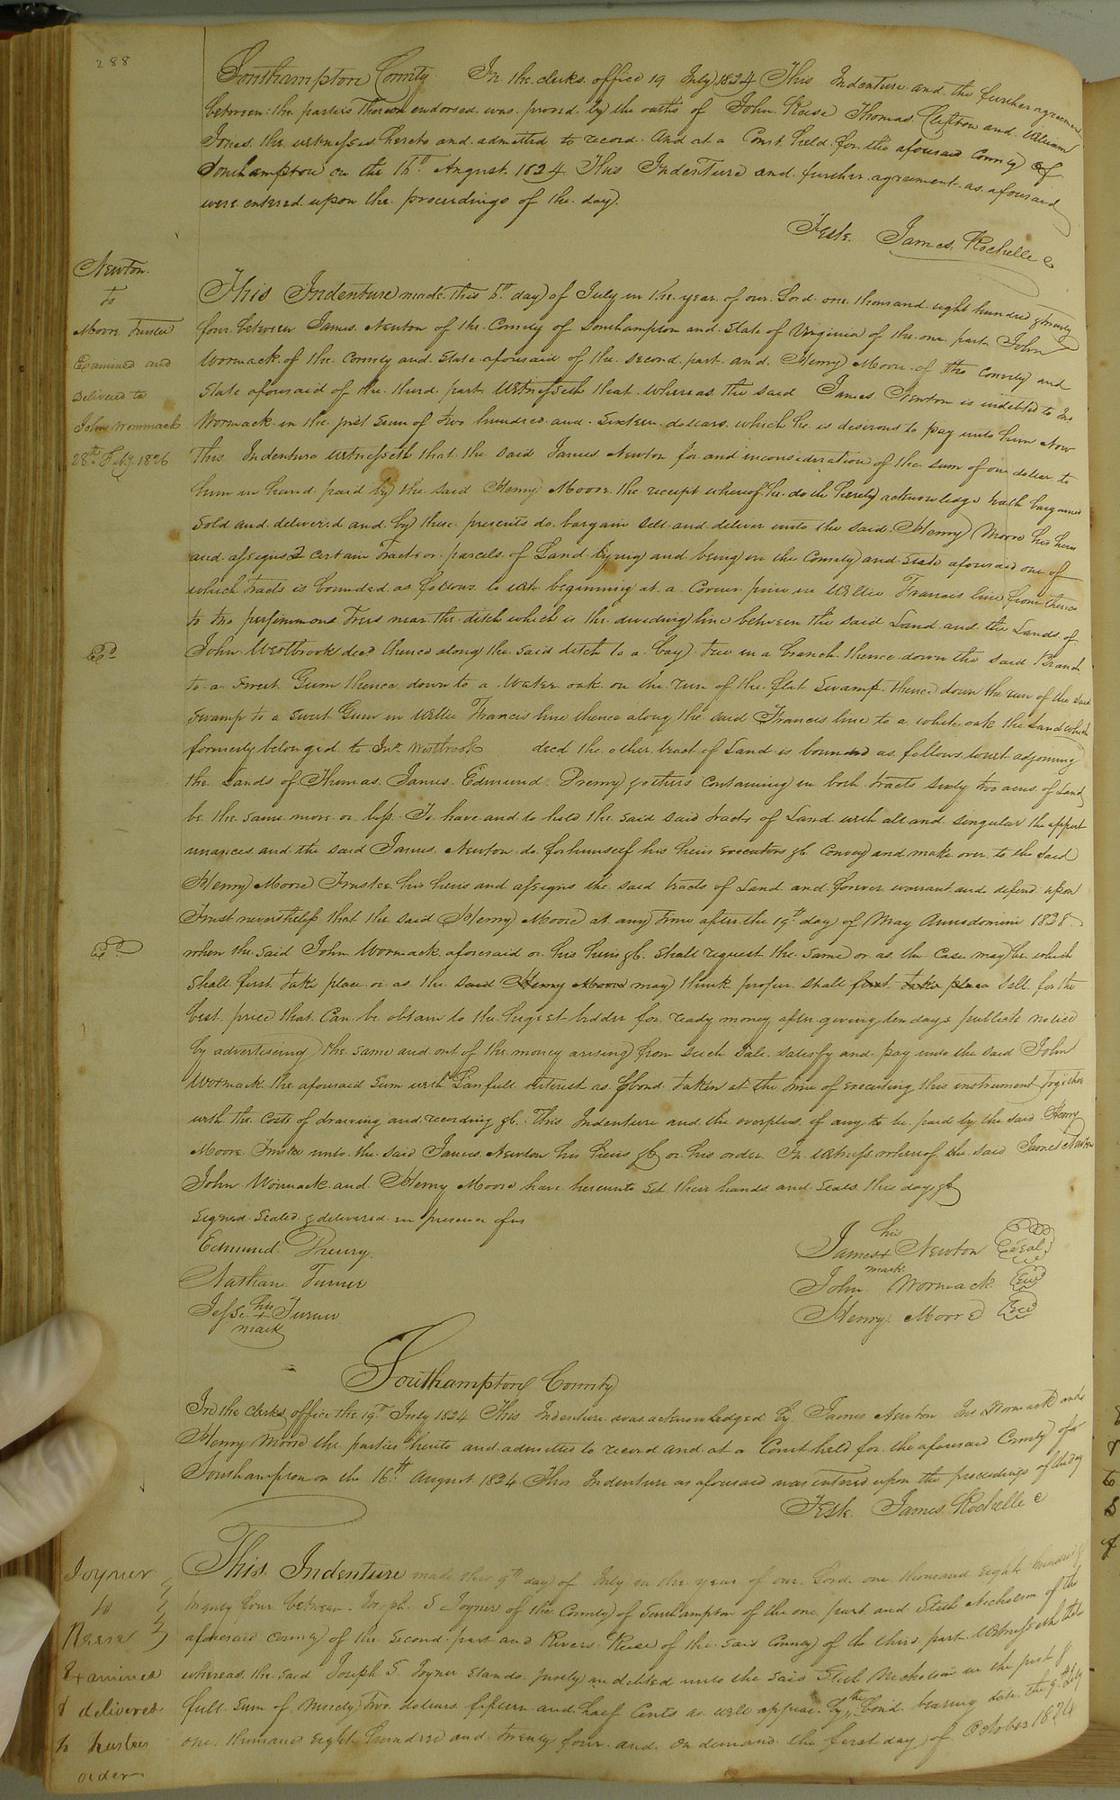 288
Southampton County In the clerks office 19 July 1824 This Indenture and the further agreement
between the parties thereon endorsed was proved by the oaths of John Reese Thomas Clifton and William
Jones the witnesses hereto and admitted to record. And at a Court held for the aforesaid County of
Southampton on the 16th August 1824 This Indenture and further agreement as aforesaid
were entered upon the proceedings of the day.
Teste. James Rochelle c
Newton
to
Moore Trustee
Examined and
Delivered to
John Wommack
28th Feby 1826
This Indenture made this 5th day of July in the year of our Lord one thousand eight hundred & twenty
four between James Newton of the County of Southampton and State of Virginia of the one part John
Wormack of the County and State aforesaid of the second part and Henry Moore of the County and
State aforesaid of the third part Witnesseth that whereas the said James Newton is indebted to Jno
Wormack in the just Sum of two hundred and Sixteen dollars which he is desirous to pay unto him Now
This Indenture witnesseth that the said James Newton for and inconsideration of the sum of one dollar to
him in hand paid by the said Henry Moore the receipt whereof he doth hereby acknowledge hath bargained
Sold and delivered and by these presents do bargain sell and deliver unto the said Henry Moore his heirs
and assigns 2 certain Tracts or parcels of Land lying and being in the County and State aforesaid one of
which tracts is bounded as follows to wit beginning at a Corner pine in Willie Francis line from thence
to two persimmons Trees near the ditch which is the dividing line between the said Land and the Lands of
John Westbrook decd thence along the said ditch to a bay tree in a branch thence down the said Branch
to a Sweet Gum thence down to a Water oak on the run of the flat Swamp thence down the run of the said
Swamp to a Sweet Gum in Willie Francis line thence along the said Francis line to a white oak the Land which
formerly belonged to Jno Westbrook decd the other tract of Land is bound as follows towit adjoining
the Lands of Thomas James Edmund Drewry & others Containing in both tracts Sixty two acres of Land
be the same more or less. To have and to hold the said said tracts of Land with all and singular the appert
nuances and the said James Newton do for himself his heirs executors &c Convey and make over to the said
Henry Moore Trustee his heirs and assigns the said tracts of Land and forever warrant and defend upon
Trust nevertheless that the said Henry Moore at any time after the 19th day of May Annodomini 1828
when the said John Wormack aforesaid or his heirs &c. shall request the same or as the Case may be which
shall first take place or as the said Henry Moore may think proper shall first take place sell for the
best price that Can be obtain to the higest bidder for ready money after giving ten days publick notice
by advertiseing the same and out of the money arising from such Sale satisfy and pay unto the said John
Wormack the aforesaid Sum with Lanfull interest as pbond taken at the time of executing this instrument together
with the Costs of drawing and recording &c. This Indenture and the overplus if any to be paid by the said Henry
Moore Trustee unto the said James Newton his heirs &c or his order In witness whereof the said James Newton
John Wormack and Henry Moore have hereunto Set their hands and Seals this day &c
Signed Sealed & delivered in presence of us
Edmund Drewry
Nathan Turner
Jesse his + mark Turner
James his + mark Newton Seal
John Wormack Seal
Henry Moore Seal
Southampton County
In the Clerks office the 19th July 1824 This Indenture was acknowledged by James Newton Jno Wormack and
Henry Moore the parties hereto and admitted to record and at a Court held for the aforesaid County of
Southampton on the 16th August 1824 This Indenture as aforesaid was entered upon the proceedings of the day
Teste. James Rochelle c
Joyner
to
Reese
Examined
& delivered
to trustees
order
This Indenture made this 9th day of July in the year of our Lord one thousand eight hundred &
twenty four between Joseph S Joyner of the County of Southampton of the one part and of the
aforesaid County of the Second part and Rivers Reese of the said County of the third part Witnesseth that
whereas the said Joseph S. Joyner stands justly indebted unto the said in the just &
full sum of two dollars fifteen and half Cents as will appear by the bond bearing date the 9th July
one thousand eight hundred and twenty four and on demand the first day of October 1824